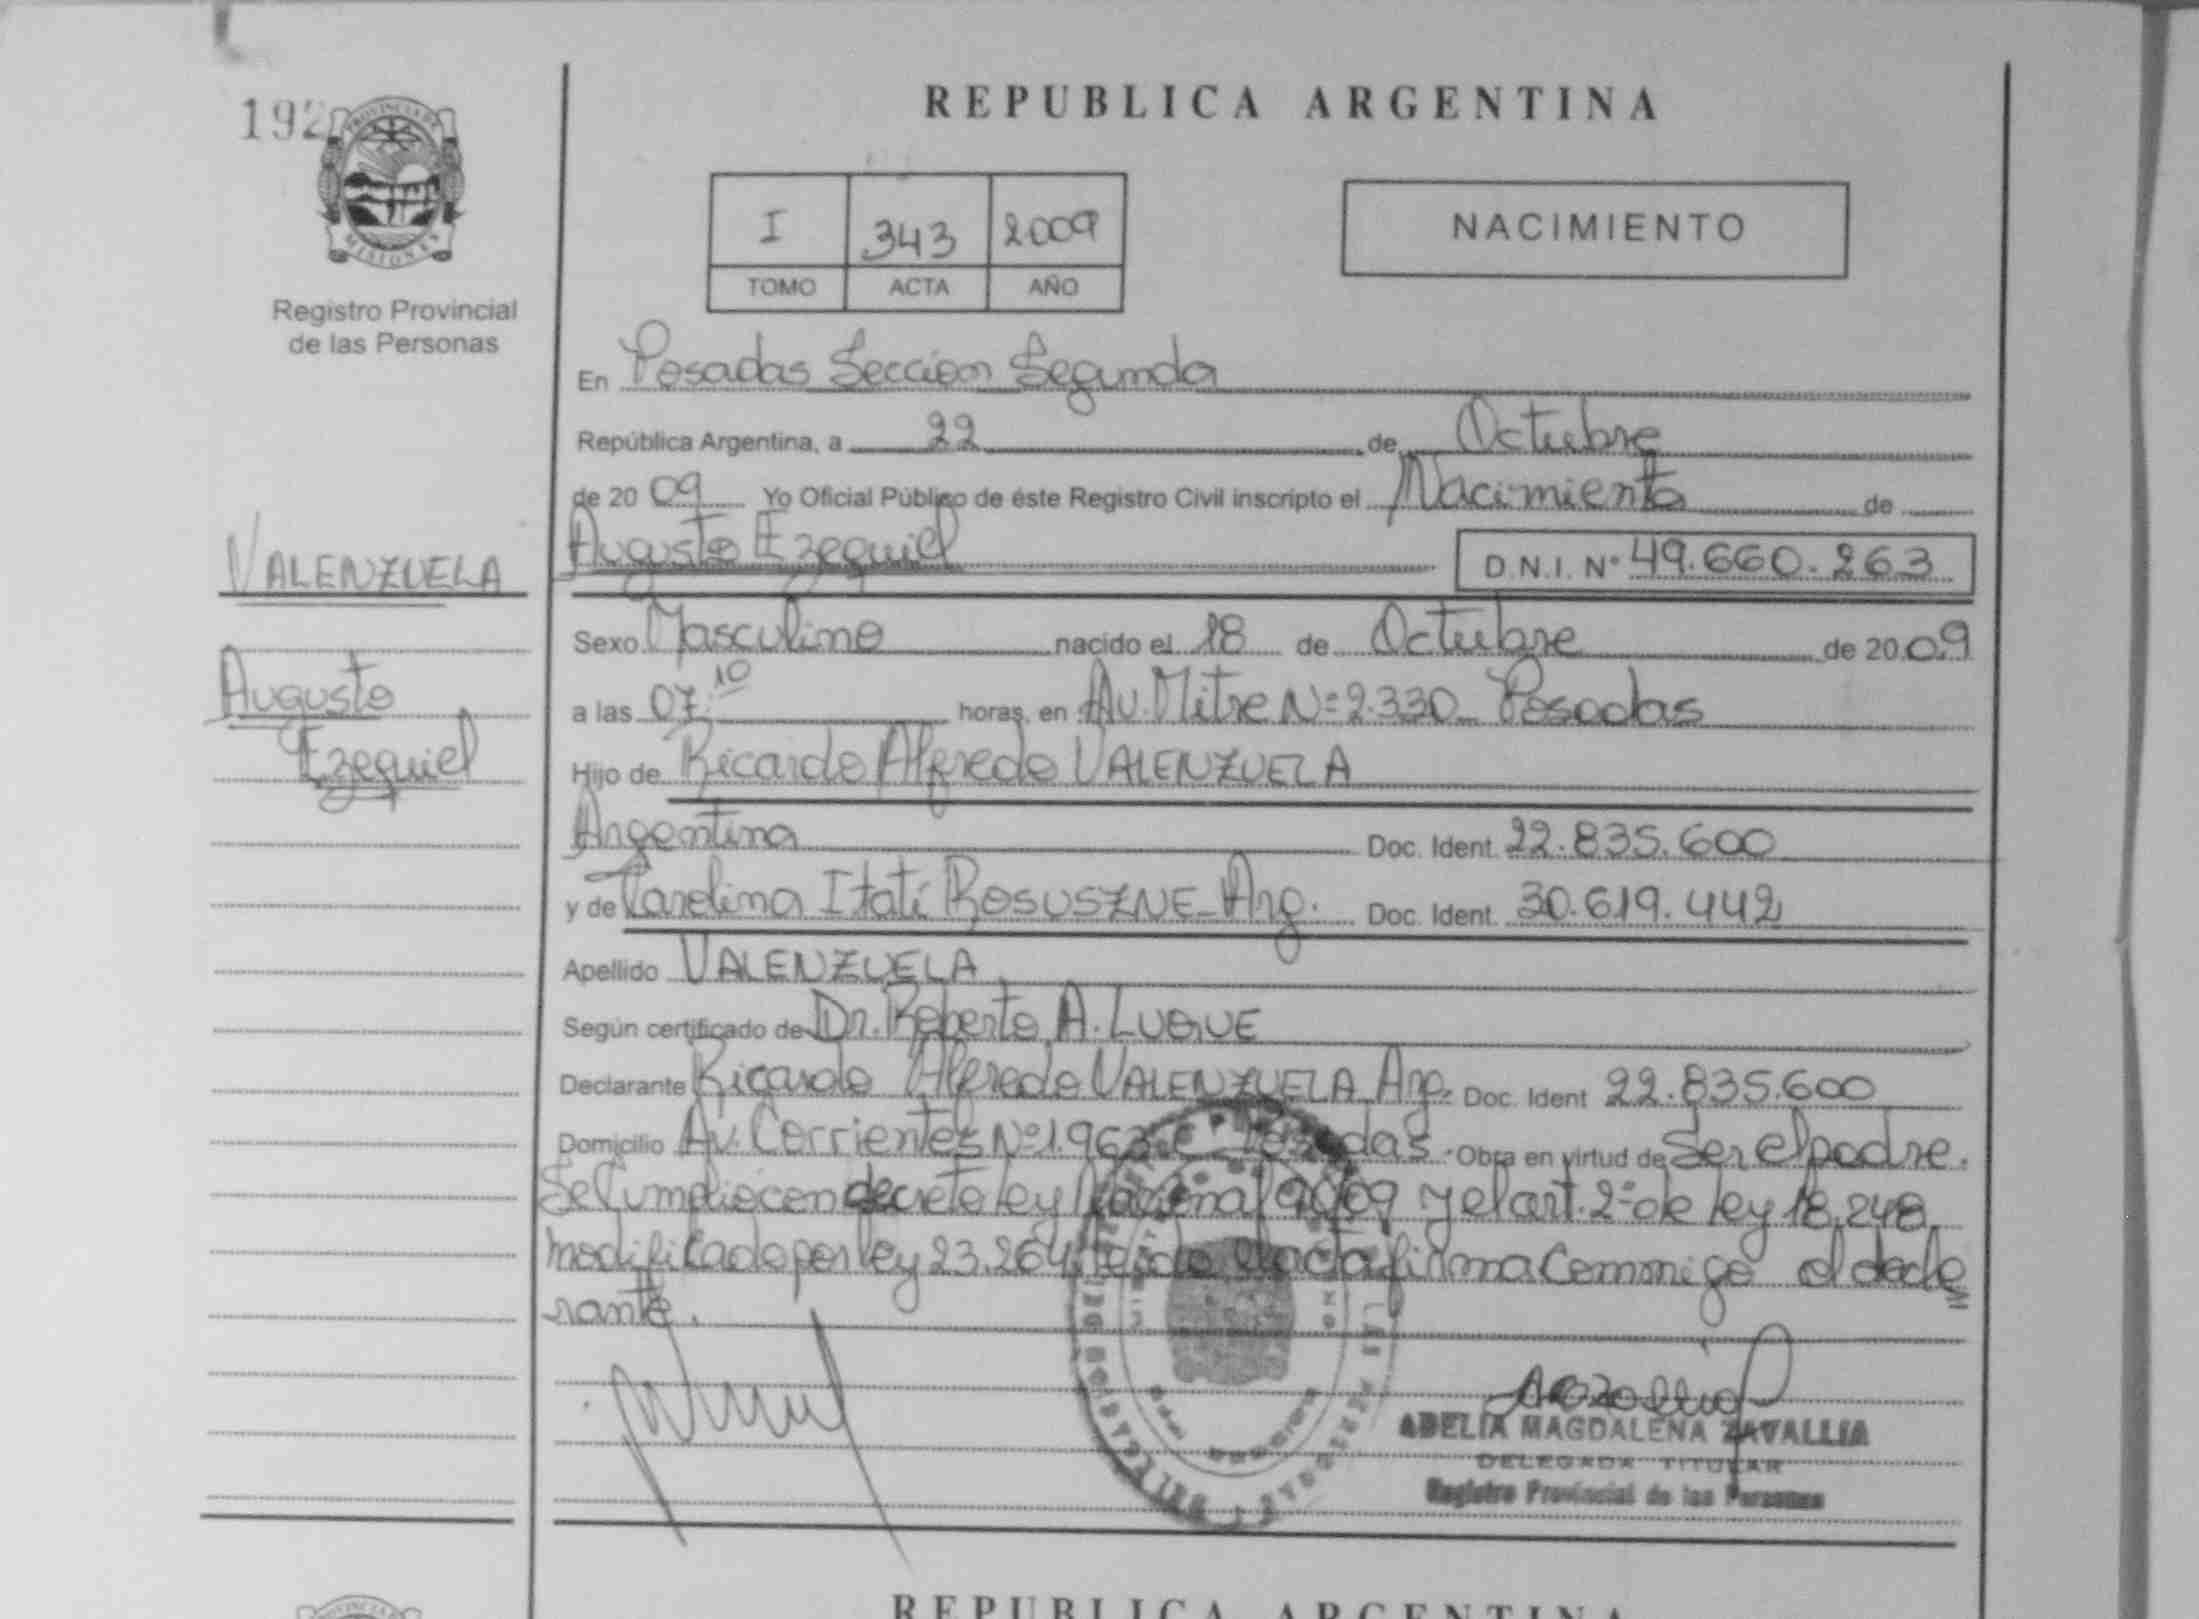 REPUBLICA ARGENTINA
192
PROVINCIA DE
MISIONES
Registro Provincial
de las Personas
I 343 2009
TOMO ACTA AÑO
NACIMIENTO
En Posadas Seccion Segunda
República Argentina, a 22 de Octubre
de 2009 Yo Oficial Público de éste Registro Civil inscripto el Nacimiento de
VALENZUELA
Augusto Ezequiel D.N.I. Nº 49.660.263
Sexo Masculino nacido el 18 de Octubre de 2009
Augusto
a las 07.10 horas, en Av. Mitre Nº 2.330 Posadas
Ezequiel
Hijo de Ricardo Alfredo VALENZUELA
Argentina Doc. Ident. 22.835.600
y de Carolina Itatí ROSUSZNE - Arg. Doc. Ident. 30.619.442
Apellido VALENZUELA
Según certificado de Dr. Roberto A. LUQUE
Declarante Ricardo Alfredo VALENZUELA Arg. Doc. Ident 22.835.600
Domicilio Av. Corrientes Nº 1.963 - Posadas. Obra en virtud de Ser el padre.
Se Cumplio con decreto ley Nacional 9009 y el art. 2º de ley 18.248
modificado por ley 23.264, leida el acta firma Conmigo el decla
rante.
ADELIA MAGDALENA ZAVALLIA
DELEGADA TITULAR
Registro Provincial de las Personas
REPUBLICA ARGENTINA